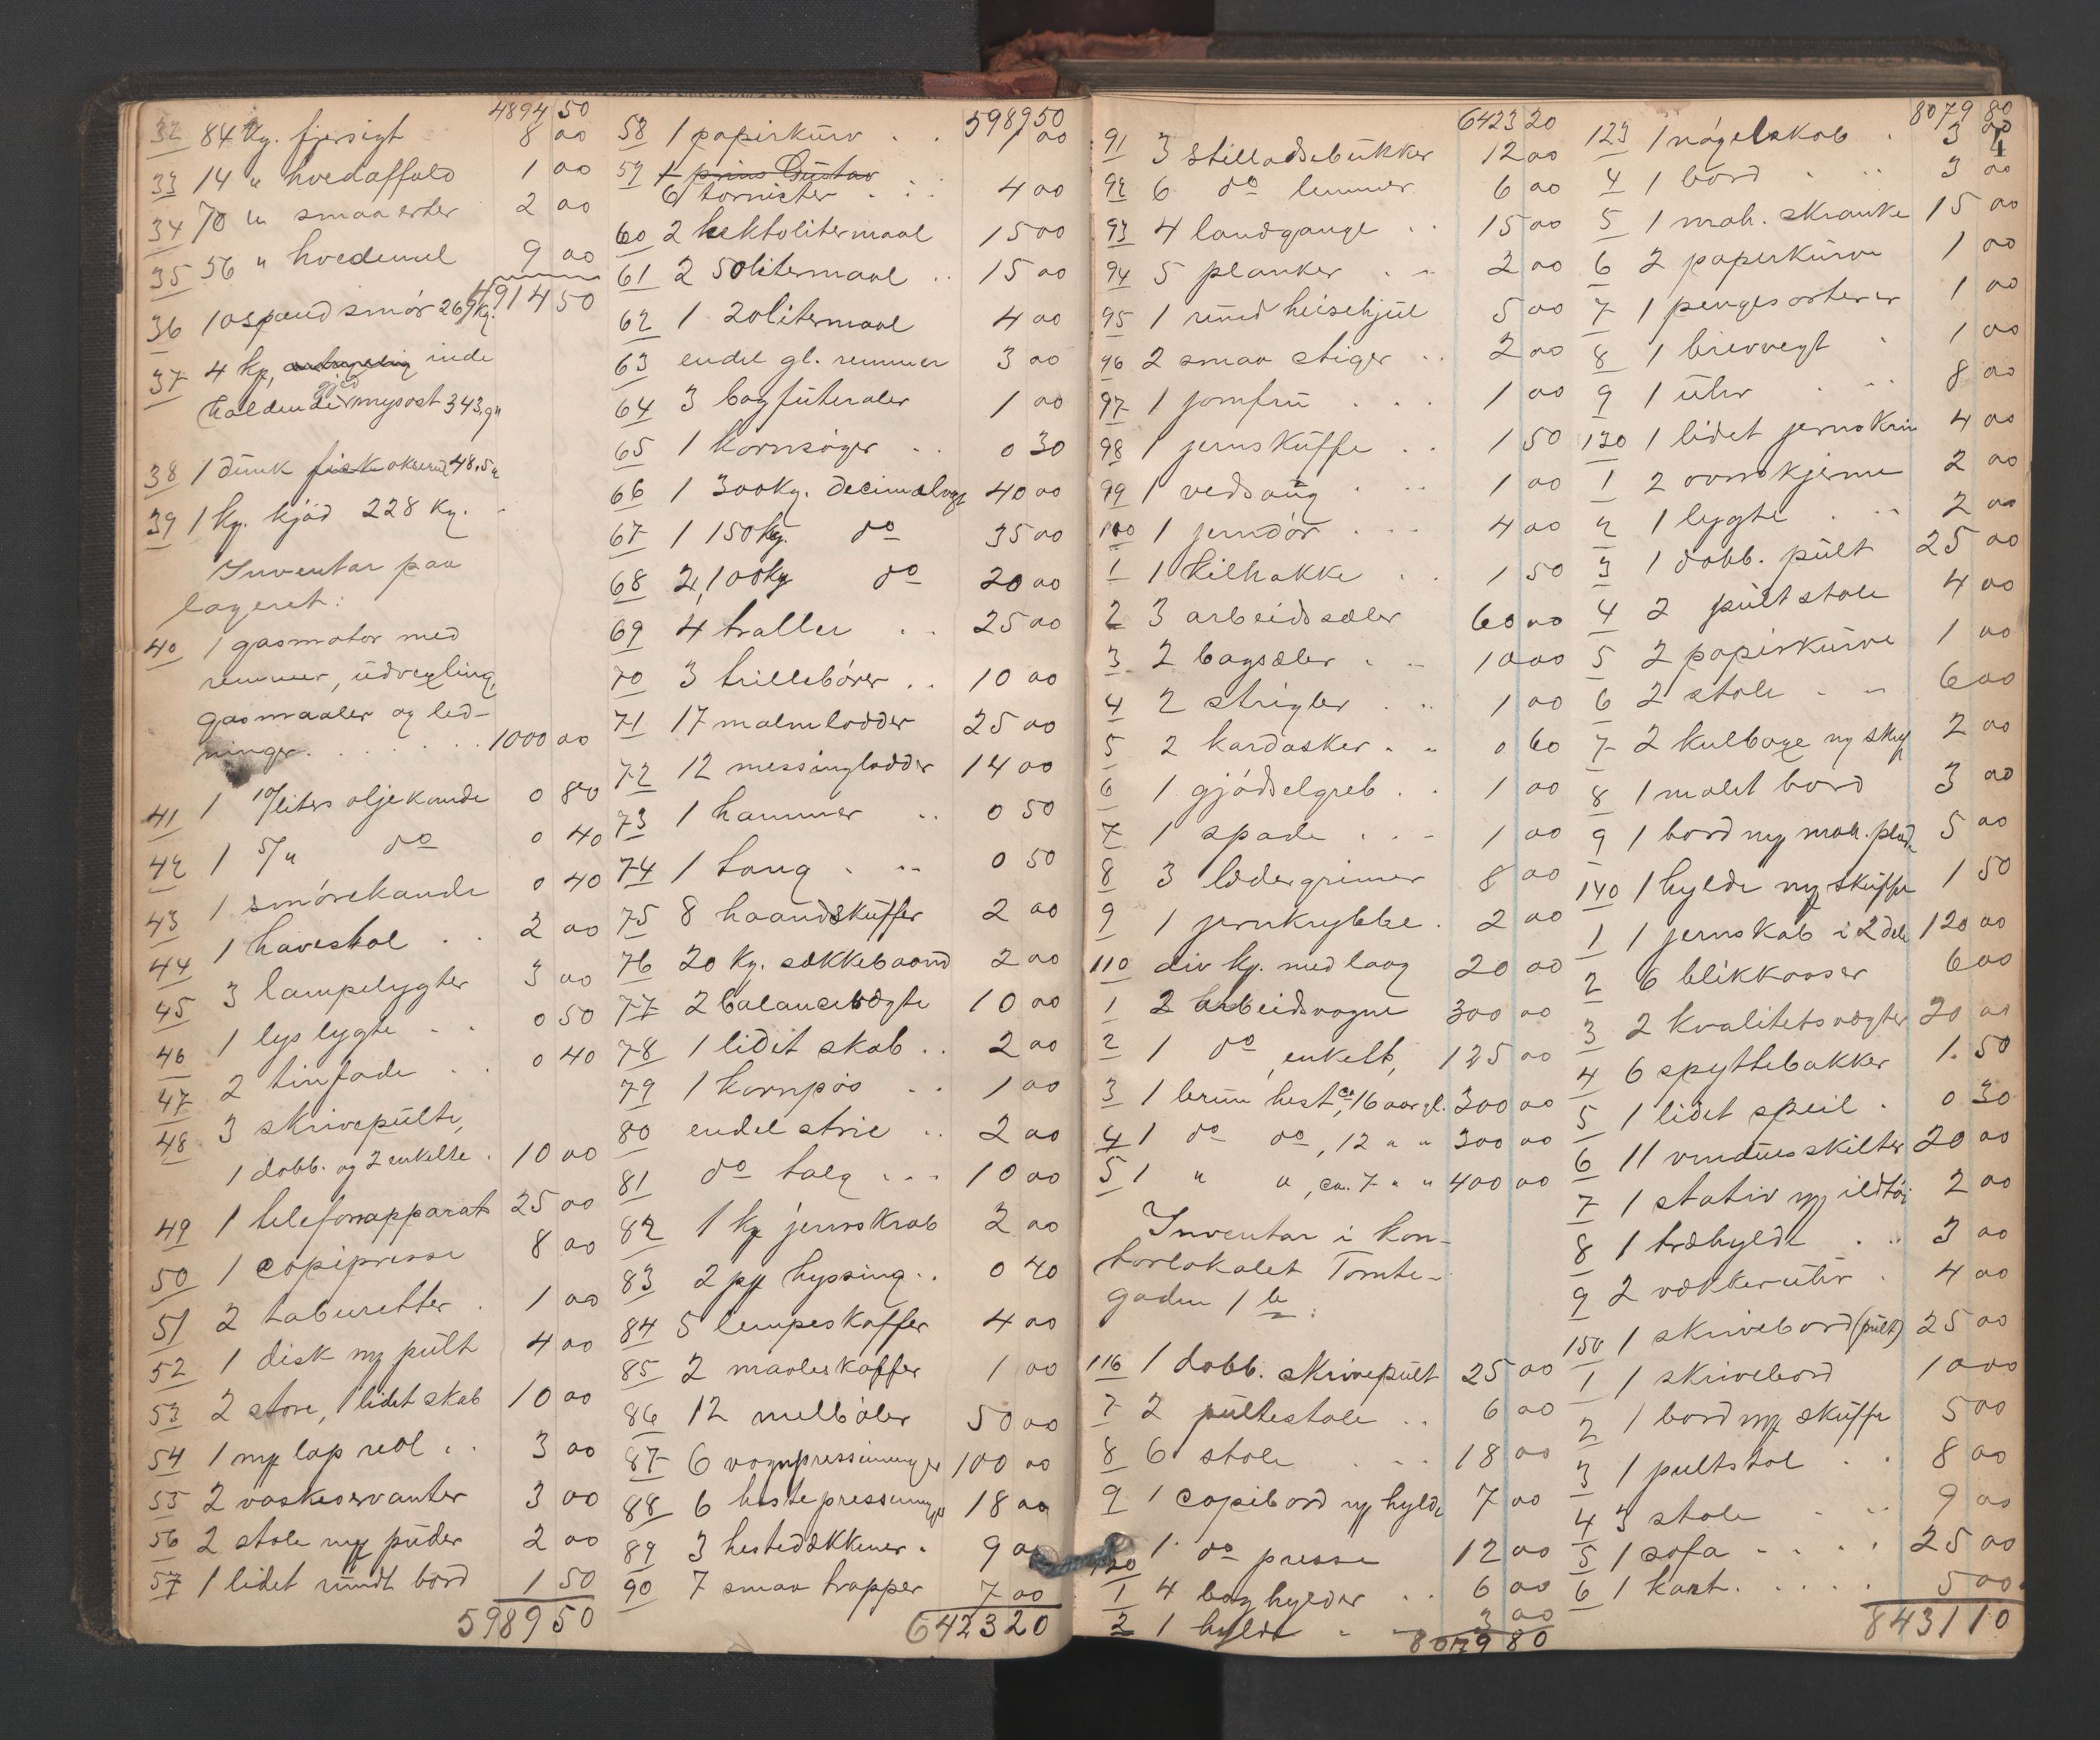 4894 50
32 84 kg. fjersigt 8 00
33 14 " hvedaffald 1 00
34 70 " smaaerter 2 00
35 56 " hvedemel 9 00
4914 50
36 10 spand smör 269 kg.
37 4 kg, inde
holdende gjed mysost 343,9 "
38 1 dunk fisk okseand 48,5 "
39 1 kg. kjød 228 kg.
Inventar paa
lageret:
40 1 gasmotor med
remmer, udvexling,
gasmaaler og led-
ninger. . . . . . . 1000 00
41 1 10/liters oljekande 0 80
42 1 5/" do 0 40
43 1 smörekande 0 40
44 1 havestol . . 2 00
45 3 lampelygter 3 00
46 1 lys lygte . . 0 50
47 2 tinfade . . 0 40
48 3 skrivepülte,
1 dobb. og 2 enkelte . 10 00
49 1 telefonapparat 25 00
50 1 copipresse 8 00
51 2 taburetter . 1 00
52 1 disk m/ pült 4 00
53 2 store, 1 lidet skab 10 00
54 1 m/ lap reol . . 3 00
55 2 vaskeservanter 3 00
56 2 stole m/ püder 2 00
57 1 lidet ründt bord 1 50
5989 50
5989 50
58 1 papirkürv . . 1 00
59 1 prins Güstav
6 tornister . . 4 00
60 2 hektolitermaal 15 00
61 2 50litermaal . . 15 00
62 1 20litermaal 4 00
63 endel gl. remmer 3 00
64 3 bagfüteraler 1 00
65 1 kornsöger . . 0 30
66 1 300kg. decimalvægt 40 00
67 1 150kg. do 35 00
68 2, 100kg do 20 00
69 4 traller . . 25 00
70 3 trillebörer . . 10 00
71 17 malmlodder 25 00
72 12 messinglodder 14 00
73 1 hammer . . 0 50
74 1 tang . . . 0 50
75 8 haandsküffer 2 00
76 20 kg. sækkebaand 2 00
77 2 balancevægte 10 00
78 1 lidet skab . . 2 00
79 1 kornpøs . . 1 00
80 endel strie . . 2 00
81 do talg . . . 10 00
82 1 kg jernskrab 2 00
83 2 pp hyssing . . 0 40
84 5 lempeskaffer 4 00
85 2 maaleskaffer 1 00
86 12 melbøler 50 00
87 6 vognpresseninger 100 00
88 6 hestepresseninger 18 00
89 3 hestedækkener . 9 00
90 7 smaa trapper 7 00
6423 20
6423 20
91 3 stilladsbükker 12 00
92 6 do lemmer 6 00
93 4 landgange . . 15 00
94 5 planker . . 2 00
95 1 ründ heisehjül 5 00
96 2 smaa stiger . . 2 00
97 1 jomfrü . . . 1 00
98 1 jernsküffe . . 1 50
99 1 vedsaüg . . . 1 00
100 1 jerndör . . . 4 00
1 1 kilhakke . . 1 50
2 3 arbeidssæler 60 00
3 2 bagsæler . . 10 00
4 2 strigler . . 1 00
5 2 kardasker . . 0 60
6 1 gjødselgreb . . 1 00
7 1 spade . . . 1 00
8 3 lædergrimer 8 00
9 1 jernkrybbe . 2 00
110 div kg. med laag 20 00
1 2 arbeidsvogne 300 00
2 1 do, enkelt, 125 00
3 1 brün hest, ca 16 aar gl. 300 00
4 1 do do, 12 " " 300 00
5 1 " ", ca. 7 " " 400 00
Inventar i kon-
torlokalet Tomte-
gaden 1 b:
116 1 dobb. skrivepült 25 00
7 2 pültestole . . 6 00
8 6 stole . . . 18 00
9 1 copibord m/ hylde 7 00
120 1 do presse 12 00
1 4 bag hylder . . 6 00
2 1 hylde . . 3 00
8079 80
8079 80
123 1 nögelskab . 3 00
4 1 bord . . 3 00
5 1 mah. skranke 15 00
6 2 papirkürve 1 00
7 1 pengesorterer 1 00
8 1 brevvegt . 1 00
9 1 ühr . . . 8 00
130 1 lidet jernskrin 4 00
1 2 ovnskjerme 2 00
2 1 lygte . . . 2 00
3 1 dobb. pült 25 00
4 2 pültstole 4 00
5 2 papirkürve 1 00
6 2 stole . . 6 00
7 2 kulboxe og skuf 2 00
8 1 malet bord 3 00
9 1 bord m/ mah. plade 5 00
140 1 hylde m/ sküffe 1 50
1 1 jernskab i 2 dele 120 00
2 6 blikkasser 6 00
3 2 kvalitetsvægter 20 00
4 6 spyttebakker 1. 50
5 1 lidet speil . 0 30
6 11 vindüesskilter 20 00
7 1 stativ m/ ildtöi 2 00
8 1 træhylde . . 3 00
9 2 vækkerühr . 4 00
150 1 skrivebord (pült) 25 00
1 1 skrivebord 10 00
2 1 bord m/ sküffe 5 00
3 1 pultstol . . 8 00
4 3 stole . . 9 00
5 1 sofa . . . . 25 00
6 1 kart. . . . . 5 00
8431 10